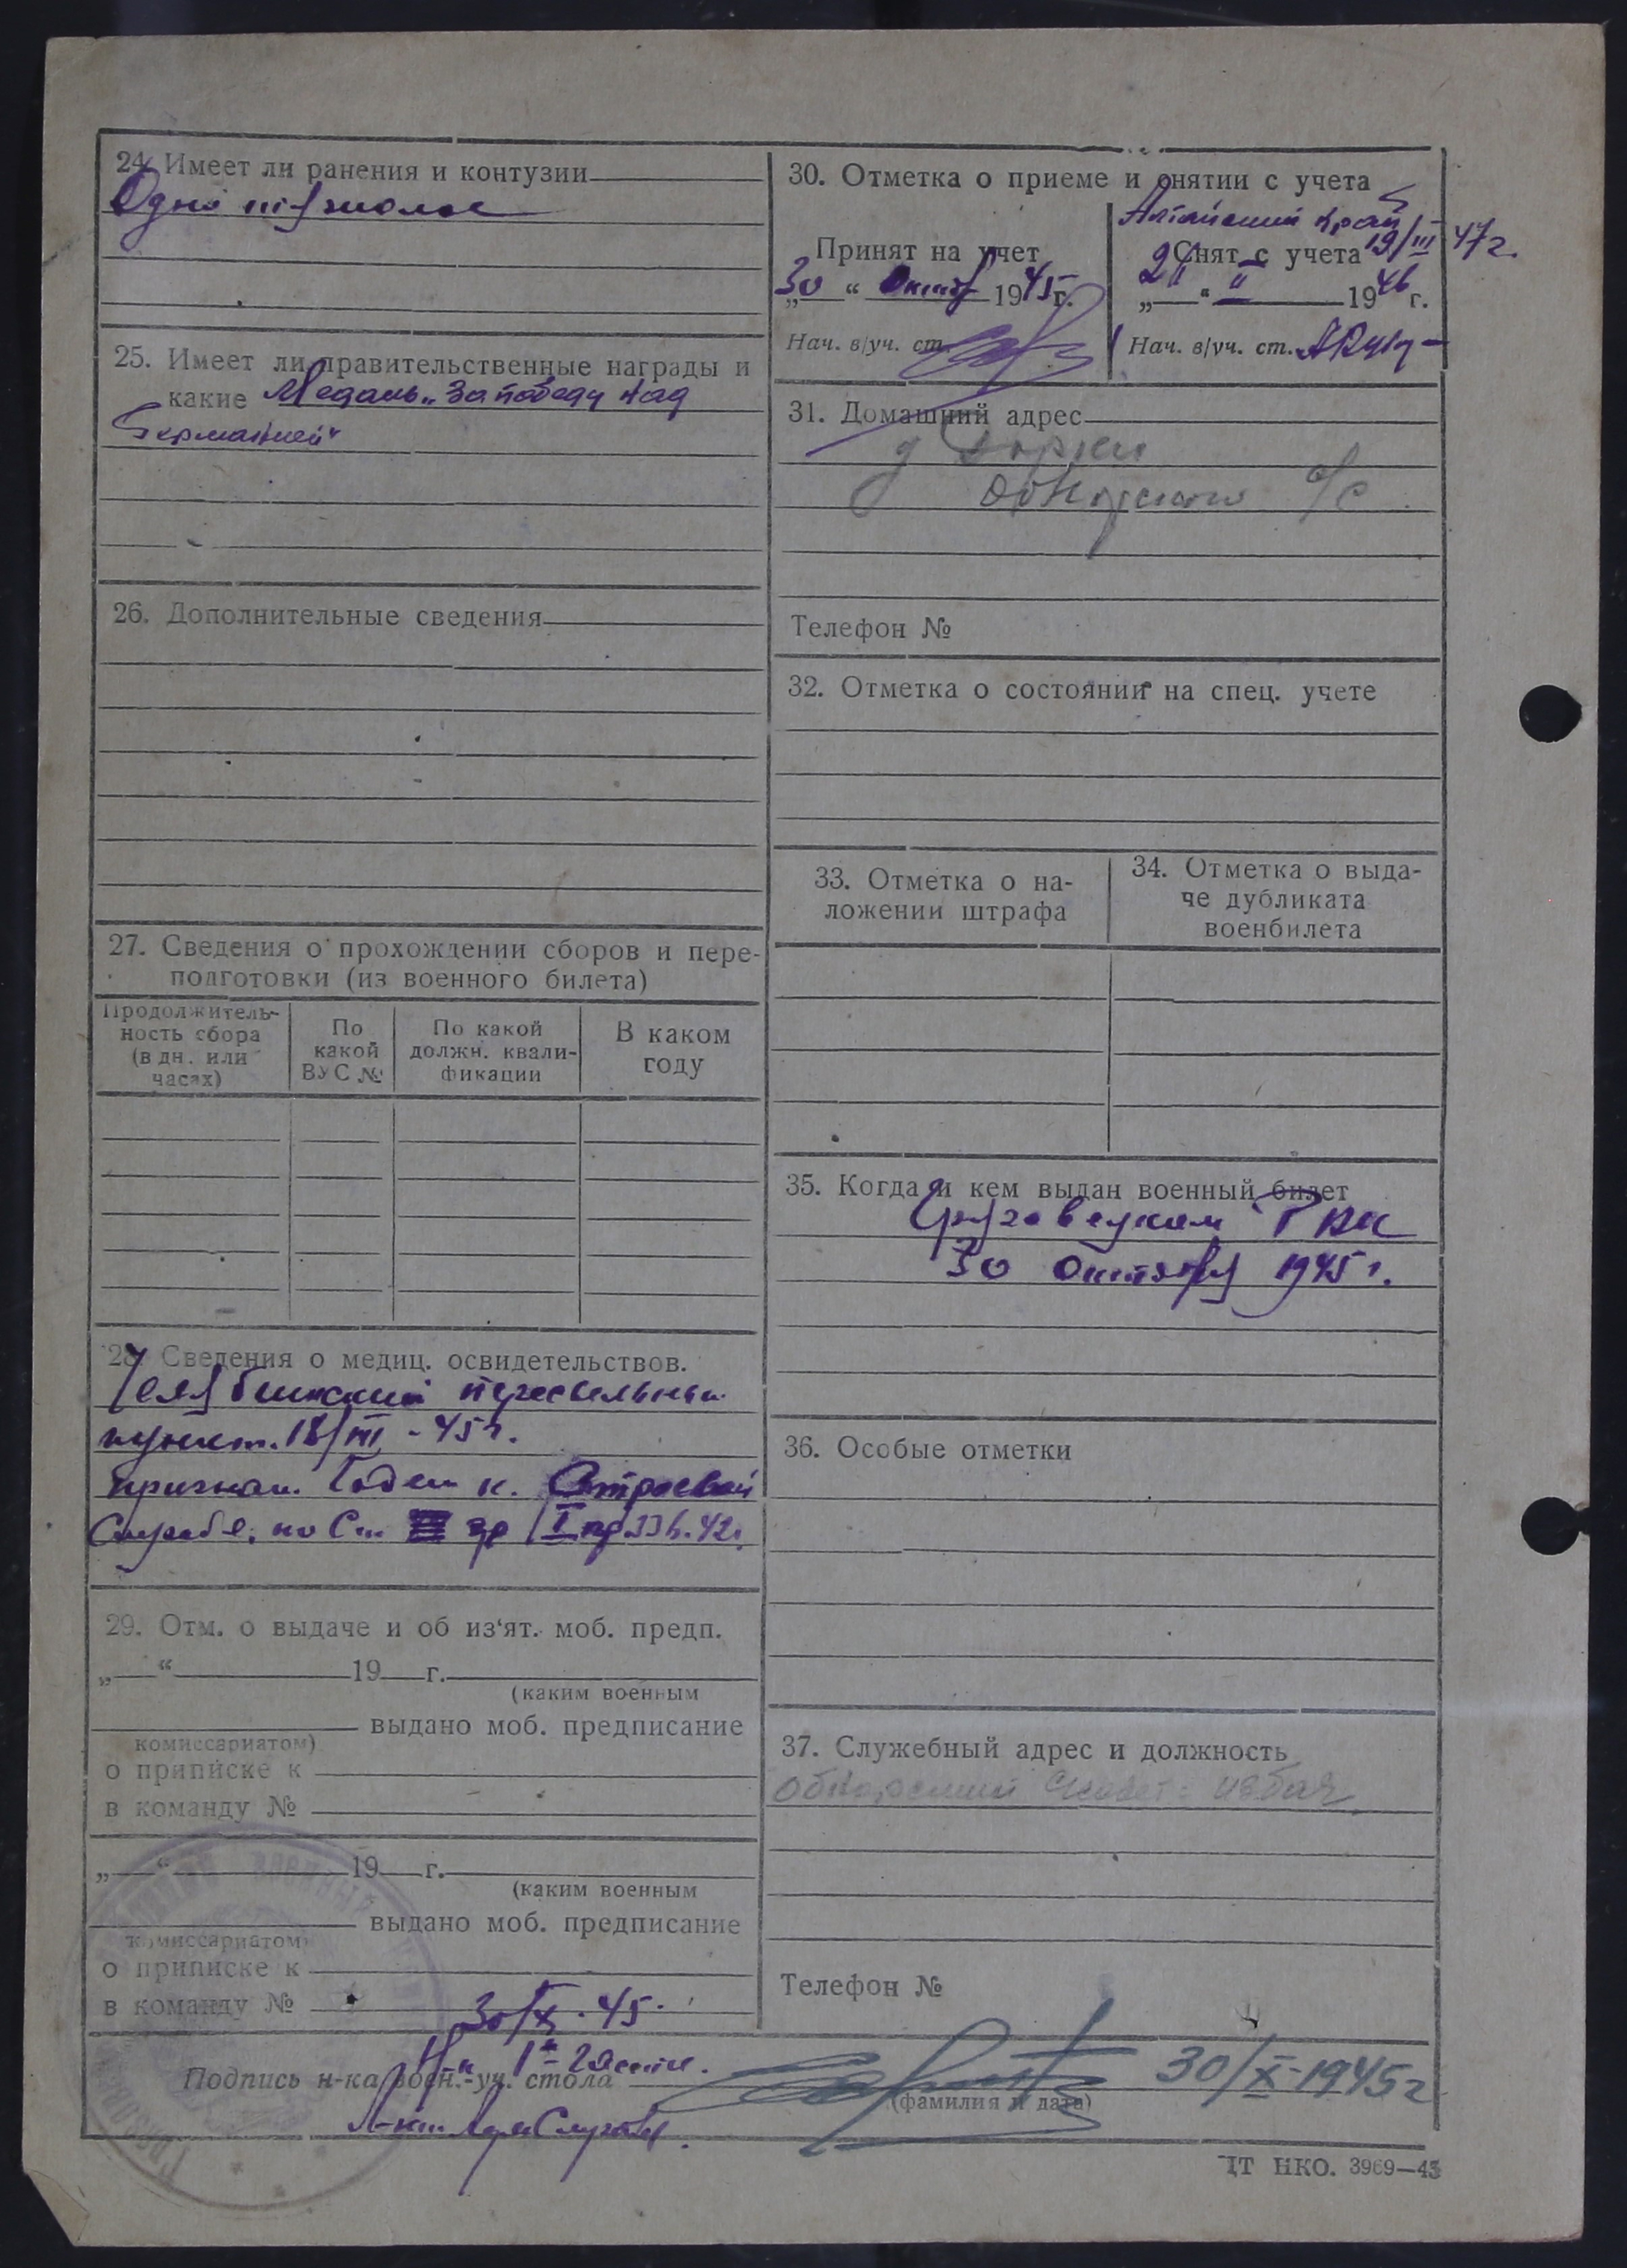 24. Имеет ли ранения и контузии
Одно тяжолое
25. Имеет ли правительственные награды и
какие Медаль „За победу над
Германией"
26. Дополнительные сведения
27. Сведения о прохождении сборов и пере-
подготовки (из военного билета)
Продолжитель-
ность сбора
(в дн. или
часах)
По
какой
ВУС №
По какой
должн. квали-
фикации
В каком
году
28. Сведения о медиц. освидетельствов.
Челябинский пересыльный
пункт. 18/III - 45 г.
признан. Годен к. Строевой
Службе. по Ст гр I пр 336. 42 г.
29. Отм. о выдаче и об из'ят. моб. предп.
„ “ 19 г.
(каким военным
выдано моб. предписание
комиссариатом)
о приписке к
в команду №
„ “ 19 г.
(каким военным
выдано моб. предписание
комиссариатом)
о приписке к
в команду №
30/X. 45.
30. Отметка о приеме и снятии с учета
Алтайский край
19/III 47 г.
Принят на учет
„30“ Октяб 1945 г.
Нач. в/уч. ст.
Снят с учета
„2“ II 1946 г.
Нач. в/уч. ст.
31. Домашний адрес
д Горки
Обнорского с/с
Телефон №
32. Отметка о состоянии на спец. учете
33. Отметка о на-
ложении штрафа
34. Отметка о выда-
че дубликата
военбилета
35. Когда и кем выдан военный билет
Грязовецким РВК
30 октября 1945 г.
36. Особые отметки
37. Служебный адрес и должность
Обнорский с/совет - избач
Телефон №
Н-к 1й части
Подпись н-ка воен.-уч. стола
30/X-1945 г
(фамилия и дата)
ЦТ НКО. 3969—43